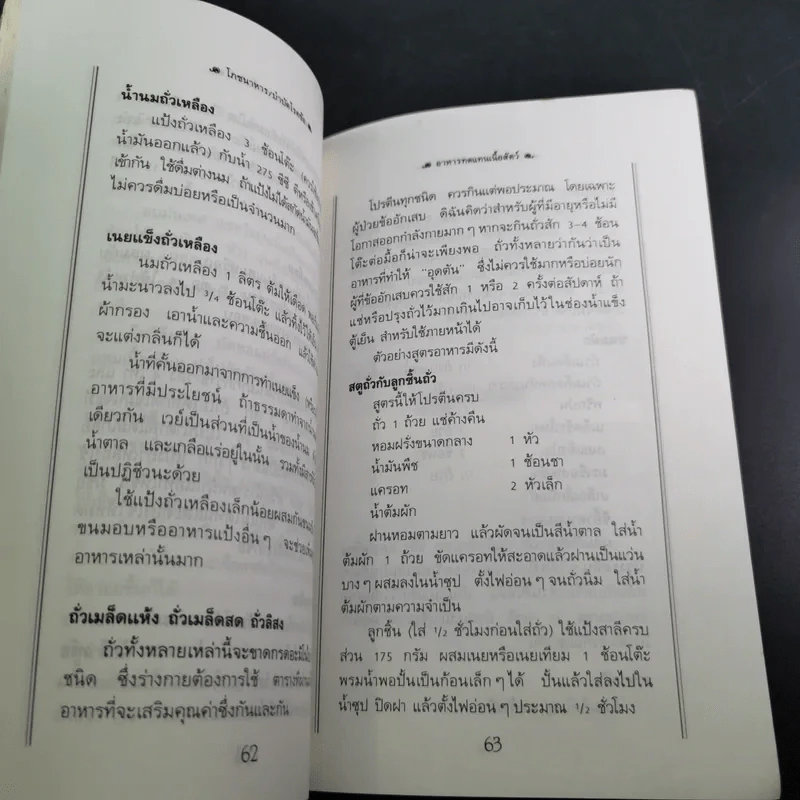 โภชนาหาร
น้ำนมถั่วเหลือง
แป้งถั่วเหลือง 3 ช้อนโต๊ะ
น้ำมันออกแล้ว) กับน้ำ 275 ซีซี
เข้ากัน ใช้ดื่มต่างนม ถ้าแป้งไม่ได้
ไม่ควรดื่มบ่อยหรือเป็นจำนวนมาก
เนยแข็งถั่วเหลือง
นมถั่วเหลือง 1 ลิตร ต้มให้เดือด
น้ำมะนาวลงไป 3/4 ช้อนโต๊ะ แล้วทิ้งไว้ให้
ผ้ากรอง เอาน้ำและความชื้นออก แล้ว
จะแต่งกลิ่นก็ได้
น้ำที่คั้นออกมาจากการทำเนยแข็ง
อาหารที่มีประโยชน์ ถ้าธรรมดาทำจาก
เดียวกัน เวย์เป็นส่วนที่เป็นน้ำของน้ำนม
น้ำตาล และเกลือแร่อยู่ในนั้น รวมทั้ง
เป็นปฏิชีวนะด้วย
ใช้แป้งถั่วเหลืองเล็กน้อยผสมกับ
ขนมอบหรืออาหารแป้งอื่นๆ จะช่วย
อาหารเหล่านั้นมาก
ถั่วเมล็ดแห้ง ถั่วเมล็ดสด ถั่วลิสง
ถั่วทั้งหลายเหล่านี้จะขาดกรดอะมิโน
ชนิด ซึ่งร่างกายต้องการใช้
อาหารที่จะเสริมคุณค่าซึ่งกันและกัน
62
อาหารทดแทนเนื้อสัตว์
โปรตีนทุกชนิด ควรกินแต่พอประมาณ โดยเฉพาะ
ผู้ป่วยข้ออักเสบ ดิฉันคิดว่าสำหรับผู้ที่มีอายุหรือไม่มี
โอกาสออกกำลังกายมากๆ หากจะกินถั่วสัก 3-4 ช้อน
โต๊ะต่อมื้อก็น่าจะเพียงพอ ถั่วทั้งหลายว่ากันว่าเป็น
อาหารที่ทำให้ "อุดตัน" ซึ่งไม่ควรใช้มากหรือบ่อยนัก
ผู้ที่ข้ออักเสบควรใช้สัก 1 หรือ 2 ครั้งต่อสัปดาห์ ถ้า
แช่หรือปรุงถั่วไว้มากเกินไปอาจเก็บไว้ในช่องน้ำแข็ง
ตู้เย็น สำหรับใช้ภายหน้าได้
ตัวอย่างสูตรอาหารมีดังนี้
สตูถั่วกับลูกชิ้นถั่ว
สูตรนี้ให้โปรตีนครบ
ถั่ว 1 ถ้วย แช่ค้างคืน
หอมฝรั่งขนาดกลาง 1 หัว
น้ำมันพืช 1 ช้อนชา
แครอท 2 หัวเล็ก
น้ำต้มผัก
ฝานหอมตามยาว แล้วผัดจนเป็นสีน้ำตาล ใส่น้ำ
ต้มผัก 1 ถ้วย ขัดแครอทให้สะอาดแล้วฝานเป็นแว่น
บางๆ ผสมลงในน้ำซุป ตั้งไฟอ่อนๆ จนถั่วนิ่ม ใส่น้ำ
ต้มผักตามความจำเป็น
ลูกชิ้น (ใส่ 1/2 ชั่วโมงก่อนใส่ถั่ว) ใช้แป้งสาลีครบ
ส่วน 175 กรัม ผสมเนยหรือเนยเทียม 1 ช้อนโต๊ะ
พรมน้ำพอปั้นเป็นก้อนเล็กๆ ได้ ปั้นแล้วใส่ลงไปใน
น้ำซุป ปิดฝา แล้วตั้งไฟอ่อนๆ ประมาณ 1/2 ชั่วโมง
63